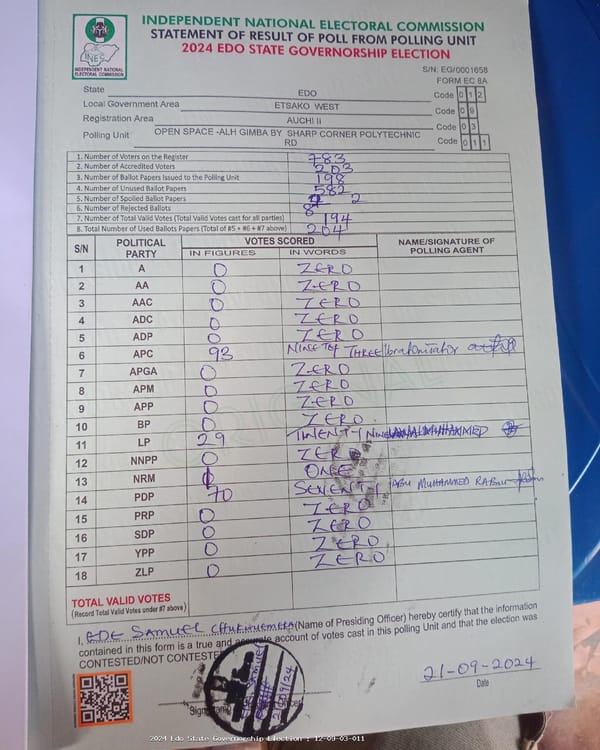 INDEPENDENT NATIONAL ELECTORAL COMMISSION
STATEMENT OF RESULT OF POLL FROM POLLING UNIT
2024 EDO STATE GOVERNORSHIP ELECTION
INEC
INDEPENDENT NATIONAL ELECTORAL COMMISSION
S/N: EG/0001658
FORM EC 8A
State EDO Code 0 1 2
Local Government Area ETSAKO WEST Code 0 9
Registration Area AUCHI II Code 0 3
Polling Unit OPEN SPACE -ALH GIMBA BY SHARP CORNER POLYTECHNIC RD Code 0 1 1
1. Number of Voters on the Register 783
2. Number of Accredited Voters 203
3. Number of Ballot Papers Issued to the Polling Unit 198
4. Number of Unused Ballot Papers 582
5. Number of Spoiled Ballot Papers 2
6. Number of Rejected Ballots 8
7. Number of Total Valid Votes (Total Valid Votes cast for all parties) 194
8. Total Number of Used Ballots Papers (Total of #5 + #6 + #7 above) 204
S/N POLITICAL PARTY VOTES SCORED NAME/SIGNATURE OF POLLING AGENT
IN FIGURES IN WORDS
1 A 0 ZERO
2 AA 0 ZERO
3 AAC 0 ZERO
4 ADC 0 ZERO
5 ADP 0 ZERO
6 APC 93 NINETY THREE
7 APGA 0 ZERO
8 APM 0 ZERO
9 APP 0 ZERO
10 BP 0 ZERO
11 LP 29 TWENTY NINE MUHAMMED
12 NNPP 0 ZERO
13 NRM 1 ONE
14 PDP 70 SEVENTY ABU MUHAMMED
15 PRP 0 ZERO
16 SDP 0 ZERO
17 YPP 0 ZERO
18 ZLP 0 ZERO
TOTAL VALID VOTES
(Record Total Valid Votes under #7 above)
I, EDE SAMUEL CHUKWUEMEKA (Name of Presiding Officer) hereby certify that the information
contained in this form is a true and accurate account of votes cast in this polling Unit and that the election was
CONTESTED/NOT CONTESTED
SAMUEL
21/09/24
21-09-2024
Date
2024 Edo State Governorship Election : 12-09-03-011